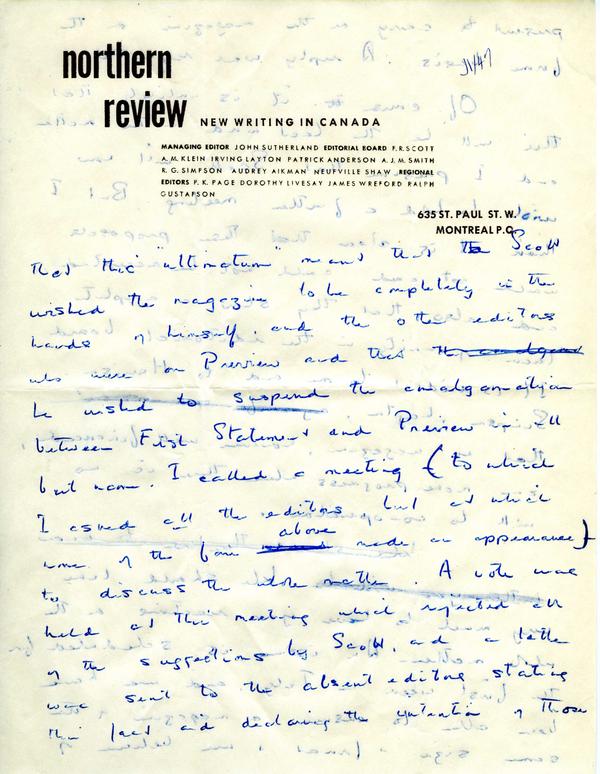 northern
review NEW WRITING IN CANADA
MANAGING EDITOR JOHN SUTHERLAND EDITORIAL BOARD F. R. SCOTT
A. M. KLEIN IRVING LAYTON PATRICK ANDERSON A. J. M. SMITH
R. G. SIMPSON AUDREY AIKMAN NEUFVILLE SHAW REGIONAL
EDITORS P. K. PAGE DOROTHY LIVESAY JAMES WREFORD RALPH
GUSTAFSON
635 ST. PAUL ST. W.
MONTREAL P.Q.
that this "ultimatum" meant that Scott
wished the magazine to be completely in the
hands of himself, and the other editors
who were on Preview and that
he wished to suspend the amalgamation
between First Statement and Preview in all
but name. I called a meeting (to which
I asked all the editors but at which
none of the four above made an appearance)
to discuss the whole matter. A vote was
held at this meeting which rejected all
of the suggestions by Scott, and a letter
was sent to the absent editors stating
this fact and declaring the intention of those